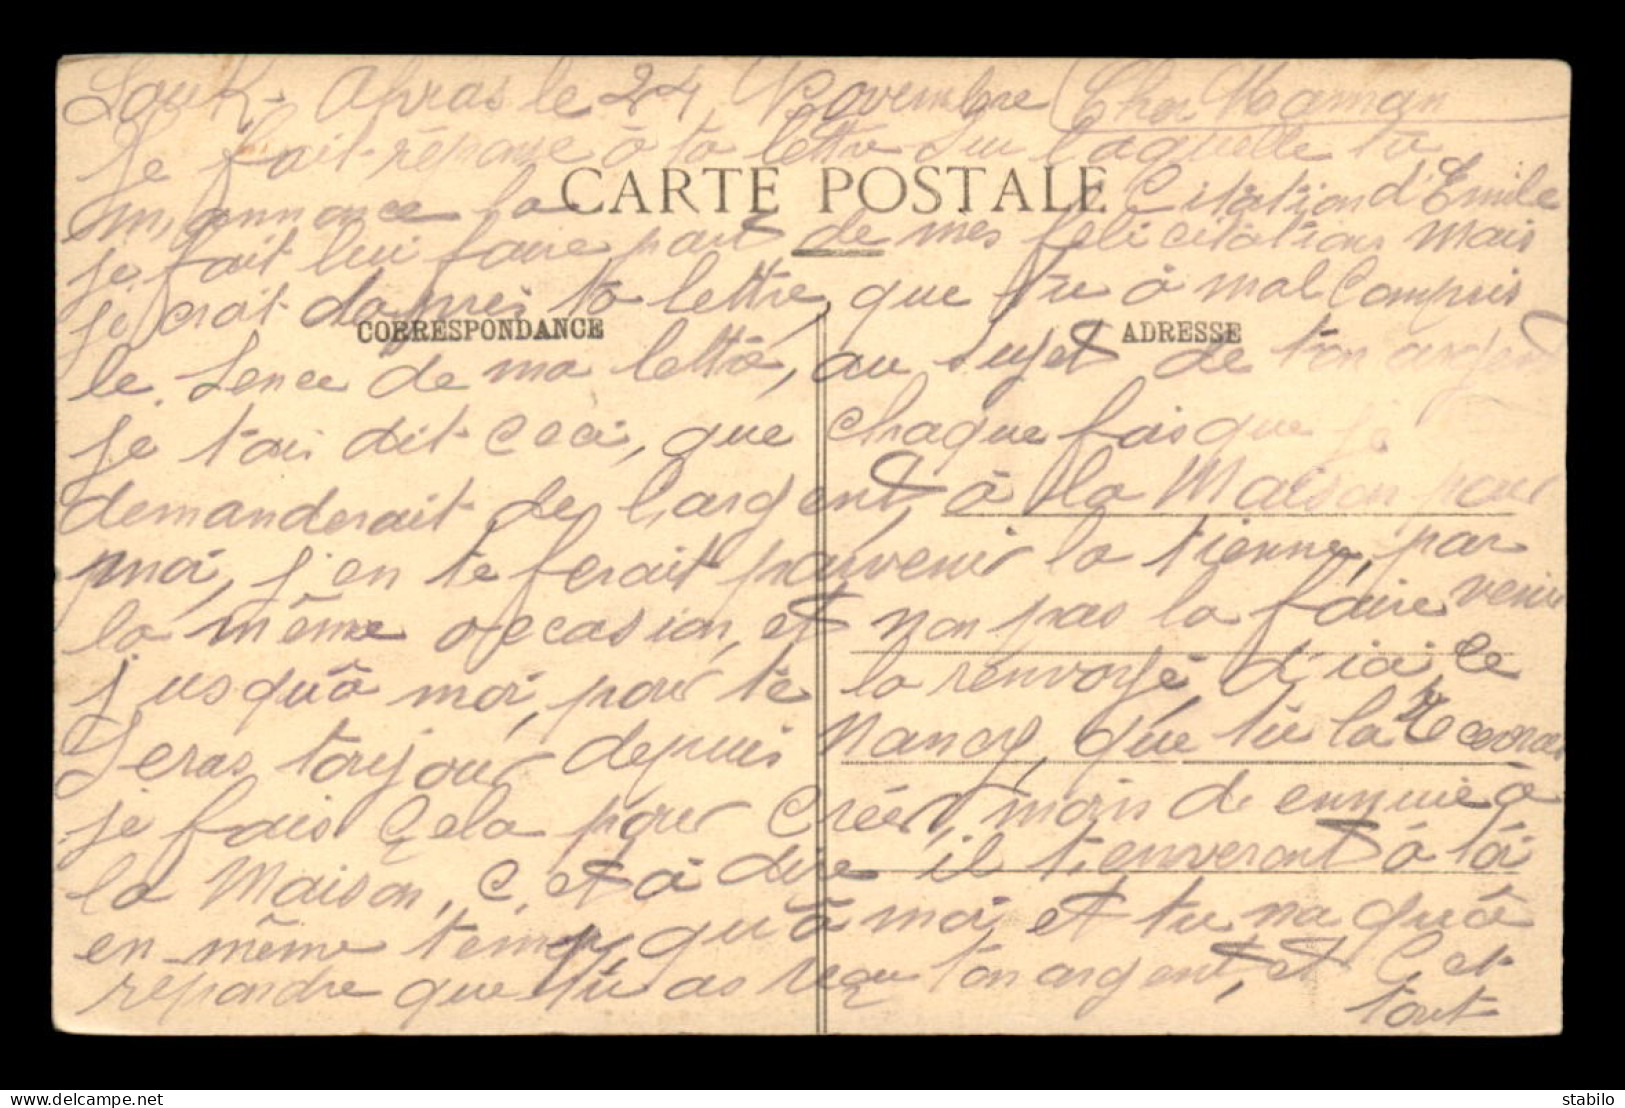 Souk-Ahras le 24 Novembre Cher Maman
Je fait réponse à ta lettre sur laquelle tu
CARTE POSTALE
m'annonce la Citation d'Emile
je fait lui faire part de mes félicitations mais
je croit dapres ta lettre, que tu à mal Compris
CORRESPONDANCE
ADRESSE
le Sence de ma lettre, au sujet de ton argent
je t'ai dit Ceci, que chaque fois que je
demanderait de l'argent, à la Maison pour
moi, j'en te ferait parvenir la tienne, par
la même occasion, et non pas la faire venir
jusqu'à moi, pour te la renvoyé d'ici, Ce
Seras toujour depuis Nancy, que tu la Recevras
je fais Cela pour Créer, moins de ennuie à
la Maison, C, et à dire il t'enverront à toi
en même temp, qu'à moi, et tu na qu'à
repondre que tu as reçu ton argent, et C, et
tout
stabilo